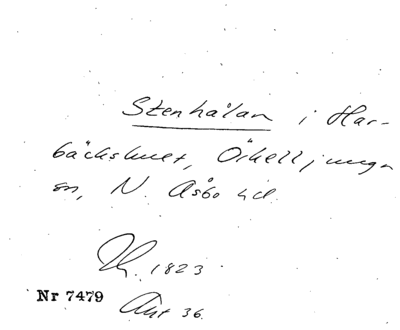 Stenhålan i Har-
bäckshult, Örkelljunga
sn, N. Åsbo hd.
1823
Nr 7479
36.